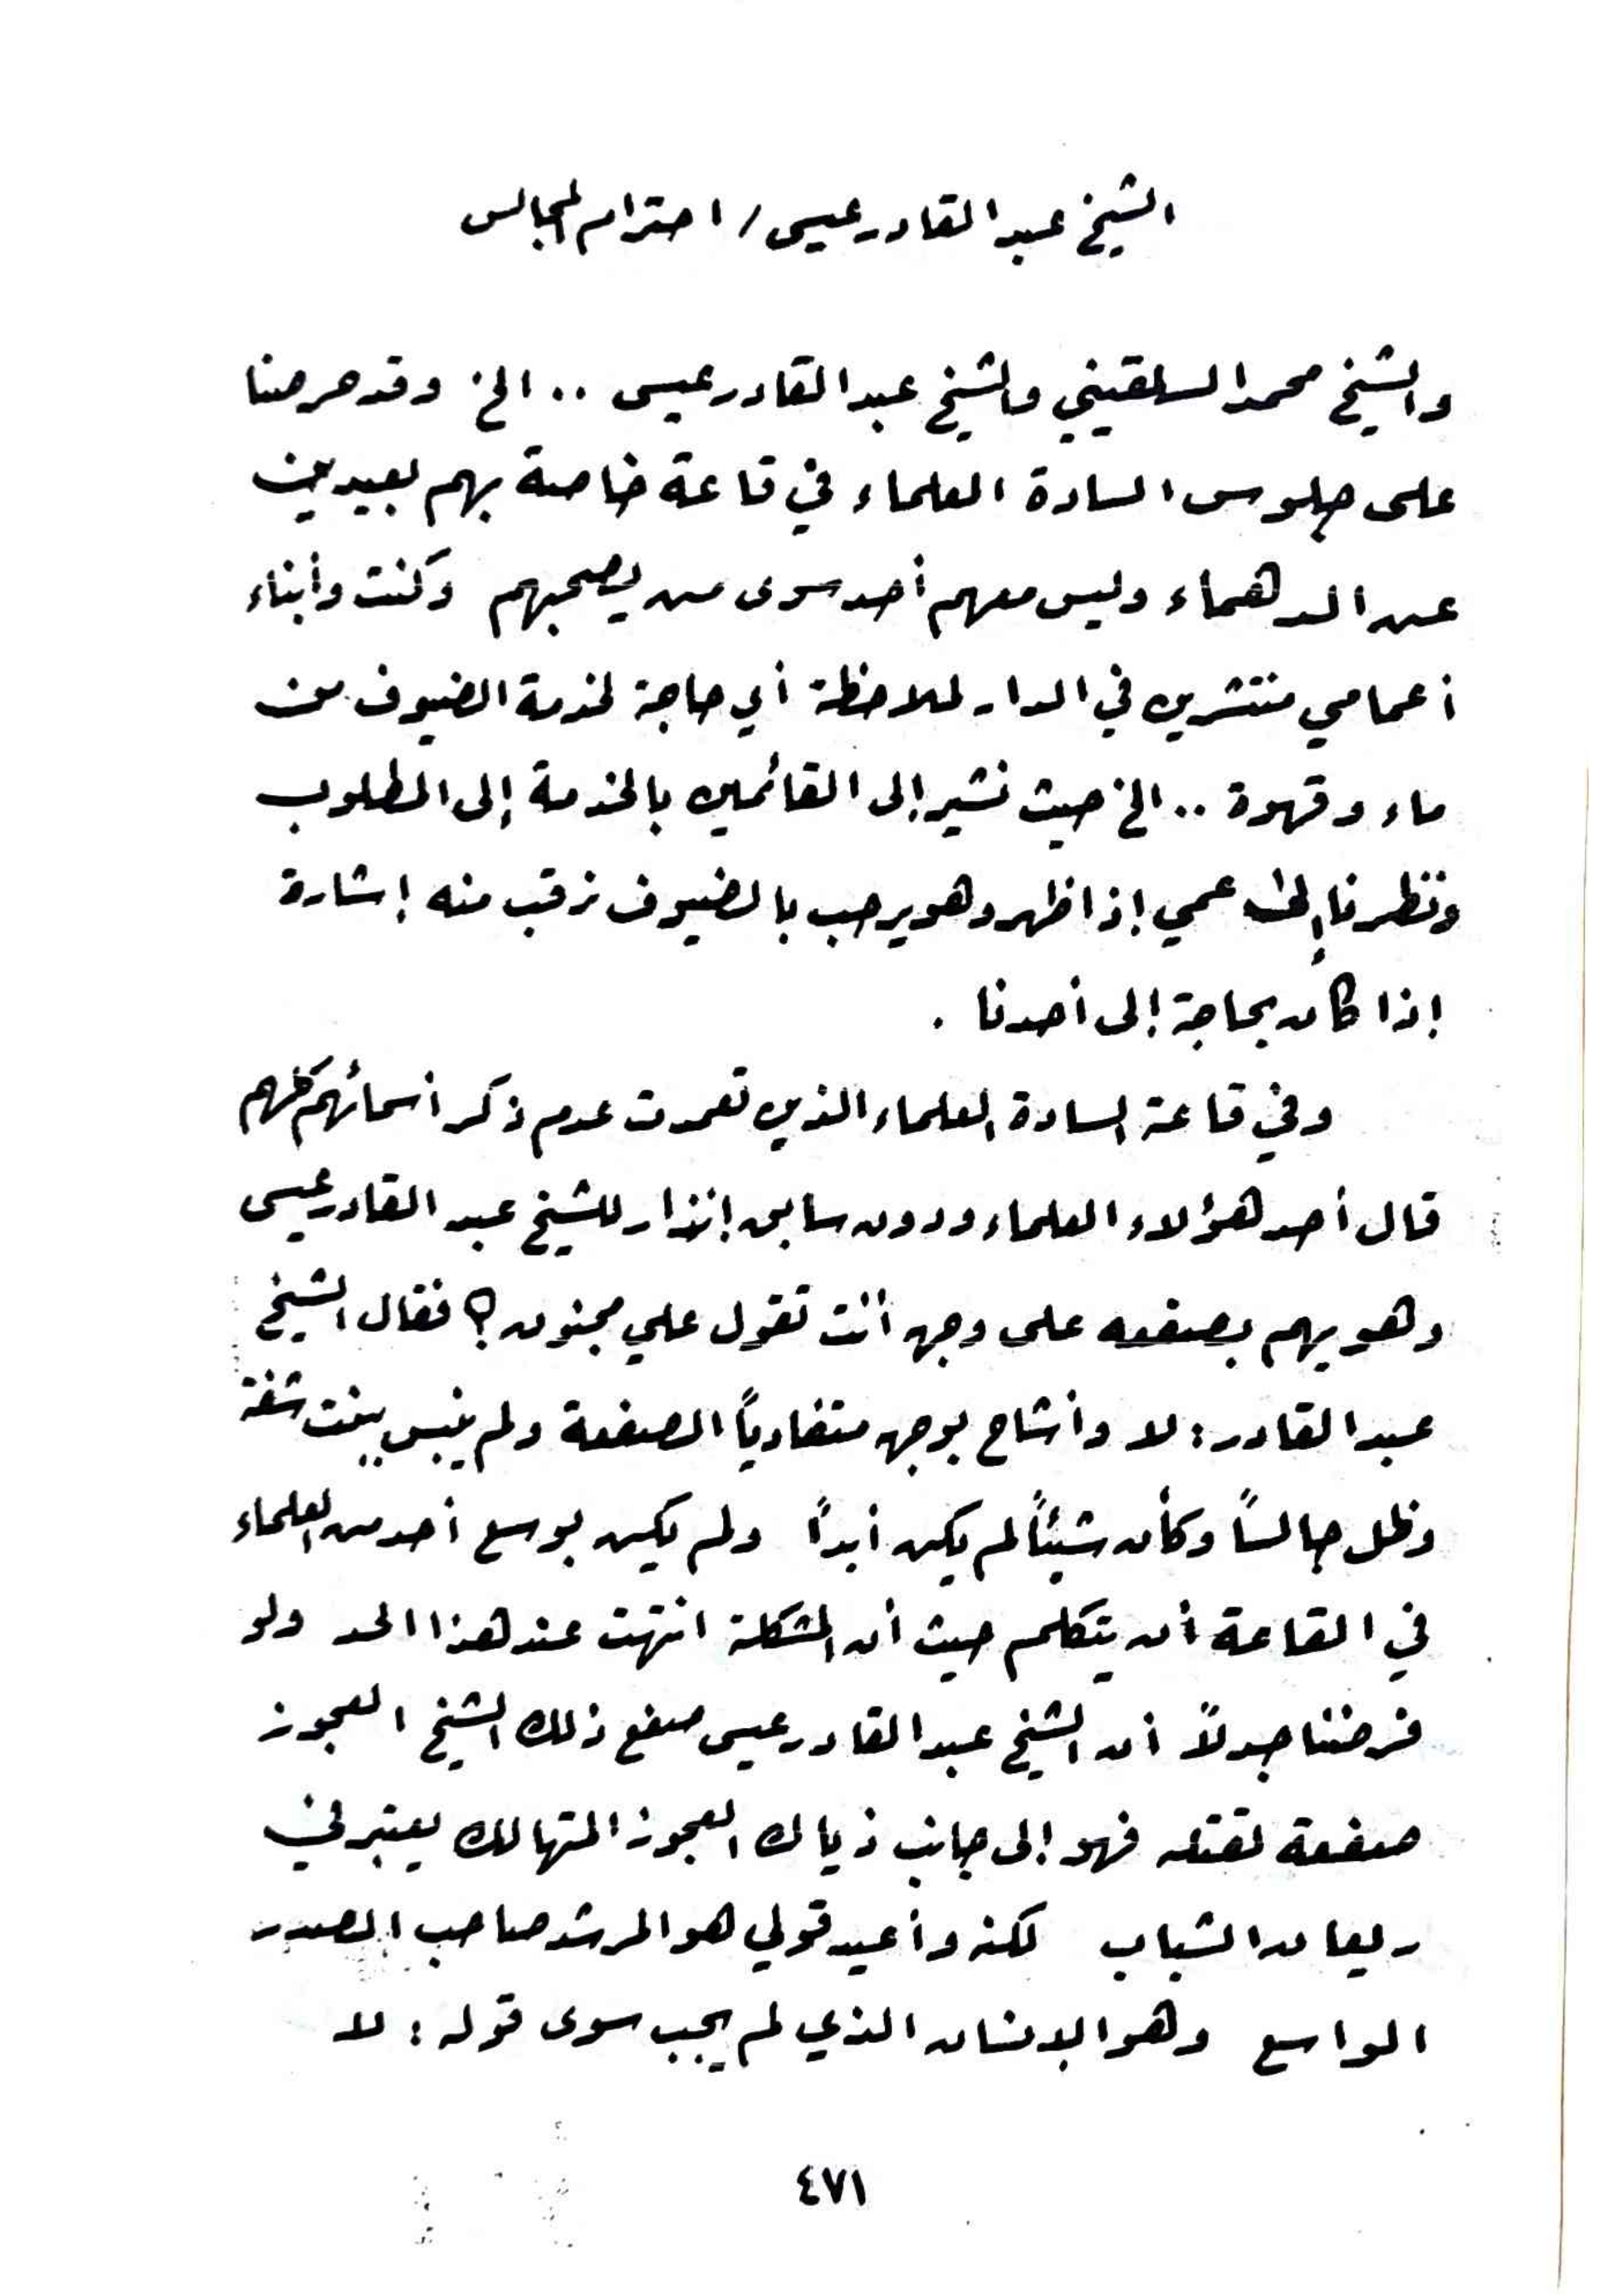 الشيخ عبد القادر عيسى / احترام المجالس
والشيخ محمد السلقيني والشيخ عبد القادر عيسى .. الخ وقد حرصنا
على جلوس السادة العلماء في قاعة خاصة بهم بعيدين
عن الدهماء وليس معهم أحد سوى من يصحبهم وكنت وأبناء
أعمامي منتشرين في الدار لملاحظة أي حاجة لخدمة الضيوف من
ماء وقهوة .. الخ حيث نشير إلى القائمين بالخدمة إلى المطلوب
ونظرنا إلى عمي إذا ظهر وهو يرحب بالضيوف نرقب منه إشارة
إذا كان بحاجة إلى أحدنا .
وفي قاعة السادة العلماء الذين تعمدت عدم ذكر أسمائهم كلهم
قال أحد هؤلاء العلماء ودون سابق إنذار للشيخ عبد القادر عيسى
وهو يهم بصفعه على وجهه أأنت تقول علي مجنون ؟ فقال الشيخ
عبد القادر : لا وأشاح بوجهه متفادياً الصفعة ولم ينبس ببنت شفة
وظل جالساً وكأن شيئاً لم يكن أبداً ولم يكن بوسع أحد من العلماء
في القاعة أن يتكلم حيث أن المشكلة انتهت عند هذا الحد ولو
فرضنا جدلاً أن الشيخ عبد القادر عيسى صفع ذلك الشيخ العجوز
صفعة لقتله فهو إلى جانب ذياك العجوز المتهالك يعتبر في
ريعان الشباب لكنه وأعيد قولي هو المرشد صاحب الصدر
الواسع وهو الإنسان الذي لم يجب سوى قوله : لا
٤٧١